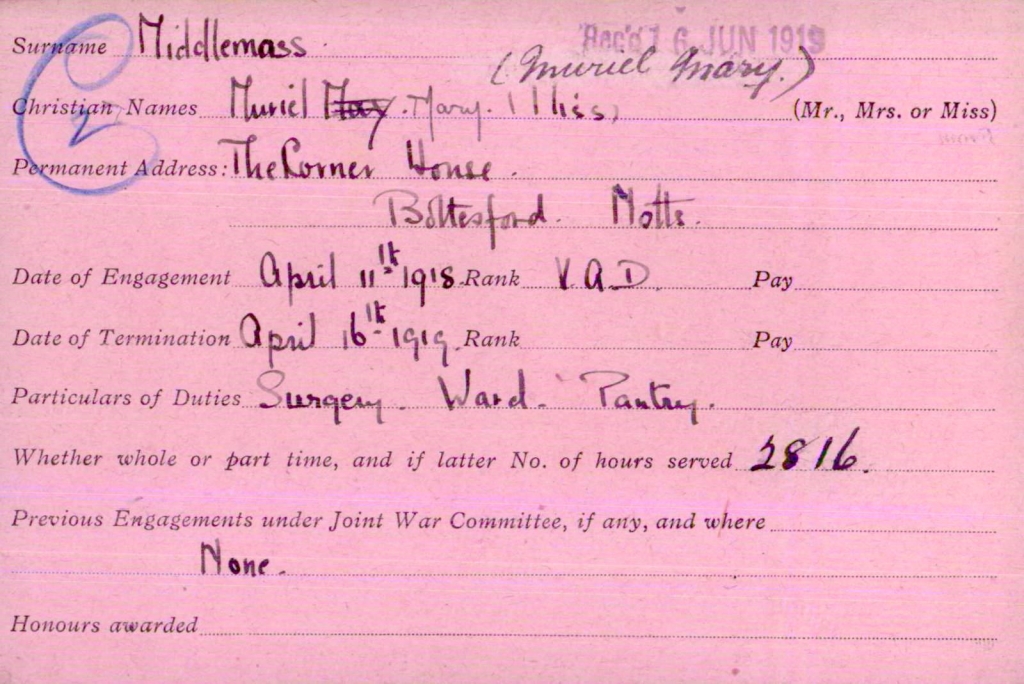 Rec'd 16 JUN 1919
Surname Middlemass
(Muriel Mary.)
Christian Names Muriel May. Mary. (Miss) (Mr., Mrs. or Miss)
Permanent Address: The Corner House.
Bottesford. Notts.
Date of Engagement April 11th 1918. Rank V.A.D. Pay
Date of Termination April 16th 1919. Rank Pay
Particulars of Duties Surgery. Ward. Pantry.
Whether whole or part time, and if latter No. of hours served 2816.
Previous Engagements under Joint War Committee, if any, and where
None.
Honours awarded
2